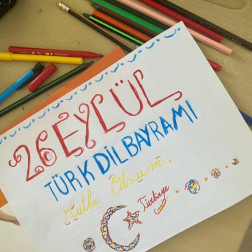 26 EYLÜL
TÜRK DİL BAYRAMI
Kutlu Olsun.
Türkiye